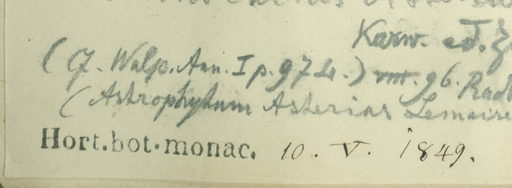 Karw. ed. Z
(Cf. Walp. Ann. I p. 974.) 96. Radl
(Astrophytum Asterias Lemaire
Hort. bot. monac. 10. V. 1849.